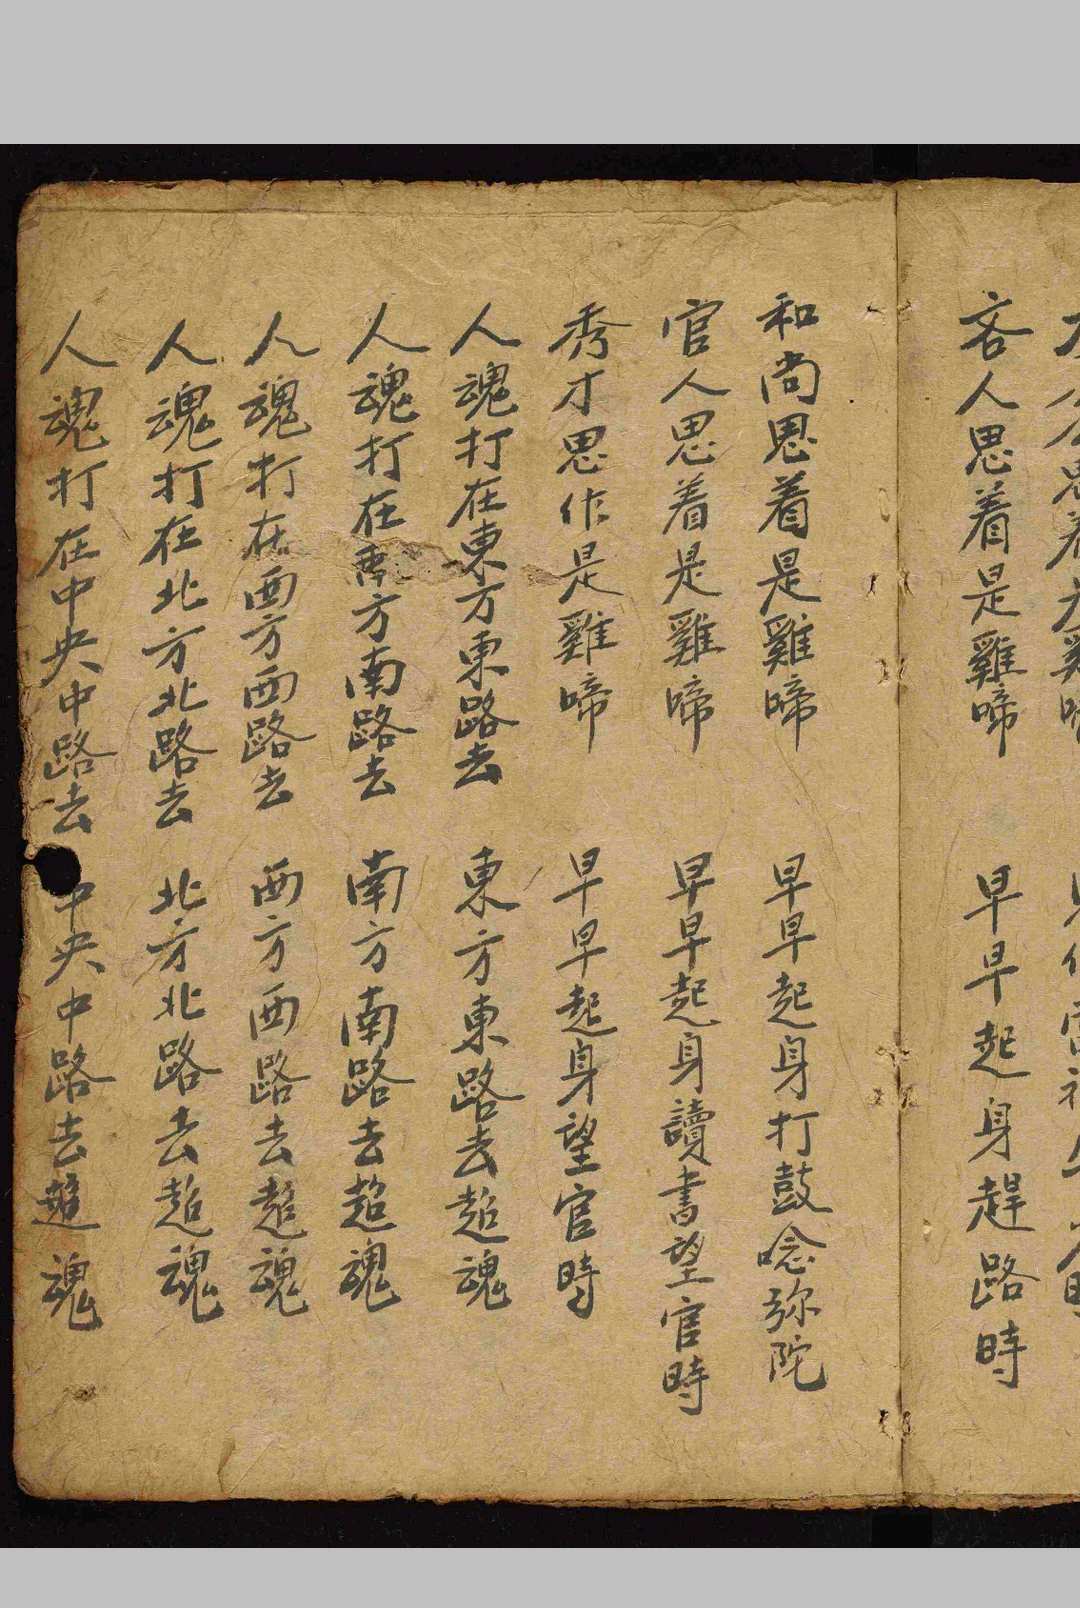 客人思着是雞啼 早早起身趕路時
和尚思着是雞啼 早早起身打鼓唸弥陀
官人思着是雞啼 早早起身讀書望官時
秀才思作是雞啼 早早起身望官時
人魂打在東方東路去 東方東路去超魂
人魂打在南方南路去 南方南路去超魂
人魂打在西方西路去 西方西路去超魂
人魂打在北方北路去 北方北路去超魂
人魂打在中央中路去 中央中路去超魂